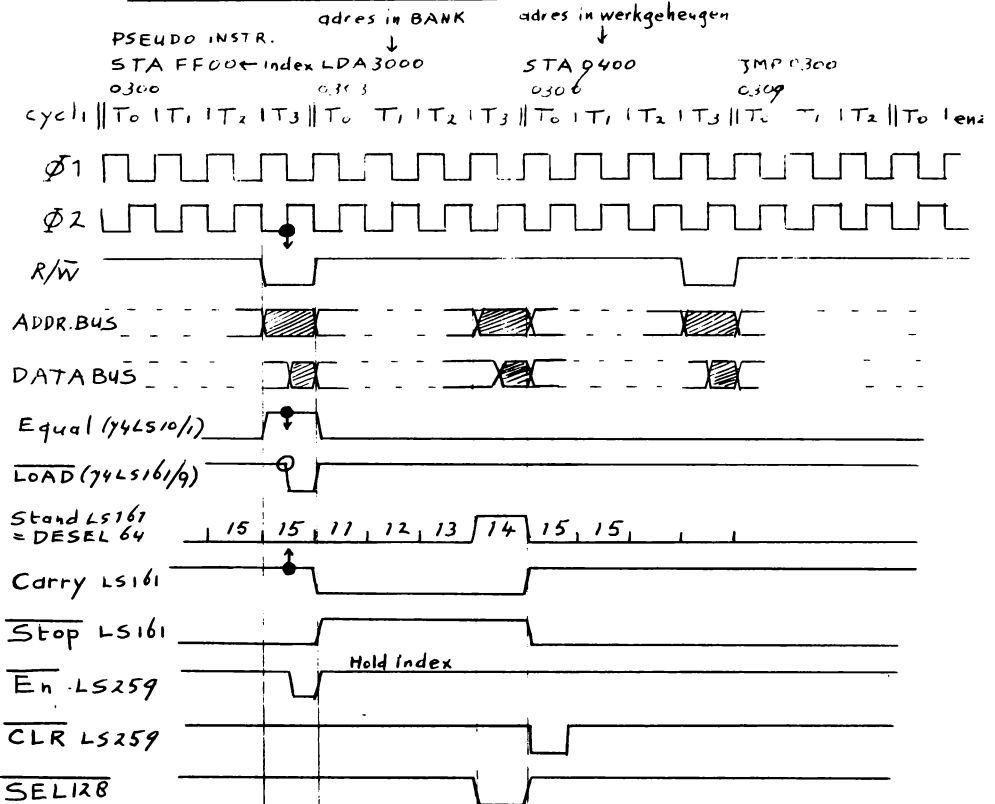 adres in BANK
adres in werkgeheugen
PSEUDO INSTR.
STA FF00 ← index LDA 3000 STA 0400 JMP 0300
0300 0303 0306 0309
cycli || T0 | T1 | T2 | T3 || T0 T1 | T2 | T3 || T0 | T1 | T2 | T3 || T0 T1 | T2 || T0 | enz
Φ1
Φ2
R/W̅
ADDR.BUS
DATA BUS
Equal (74LS10/1)
L̅O̅A̅D̅ (74LS161/9)
Stand LS161
= DESEL 64
15 15 11 12 13 14 15 15
Carry LS161
S̅t̅o̅p̅ LS161
Hold index
E̅n̅ LS259
C̅L̅R̅ LS259
S̅E̅L̅1̅2̅8̅